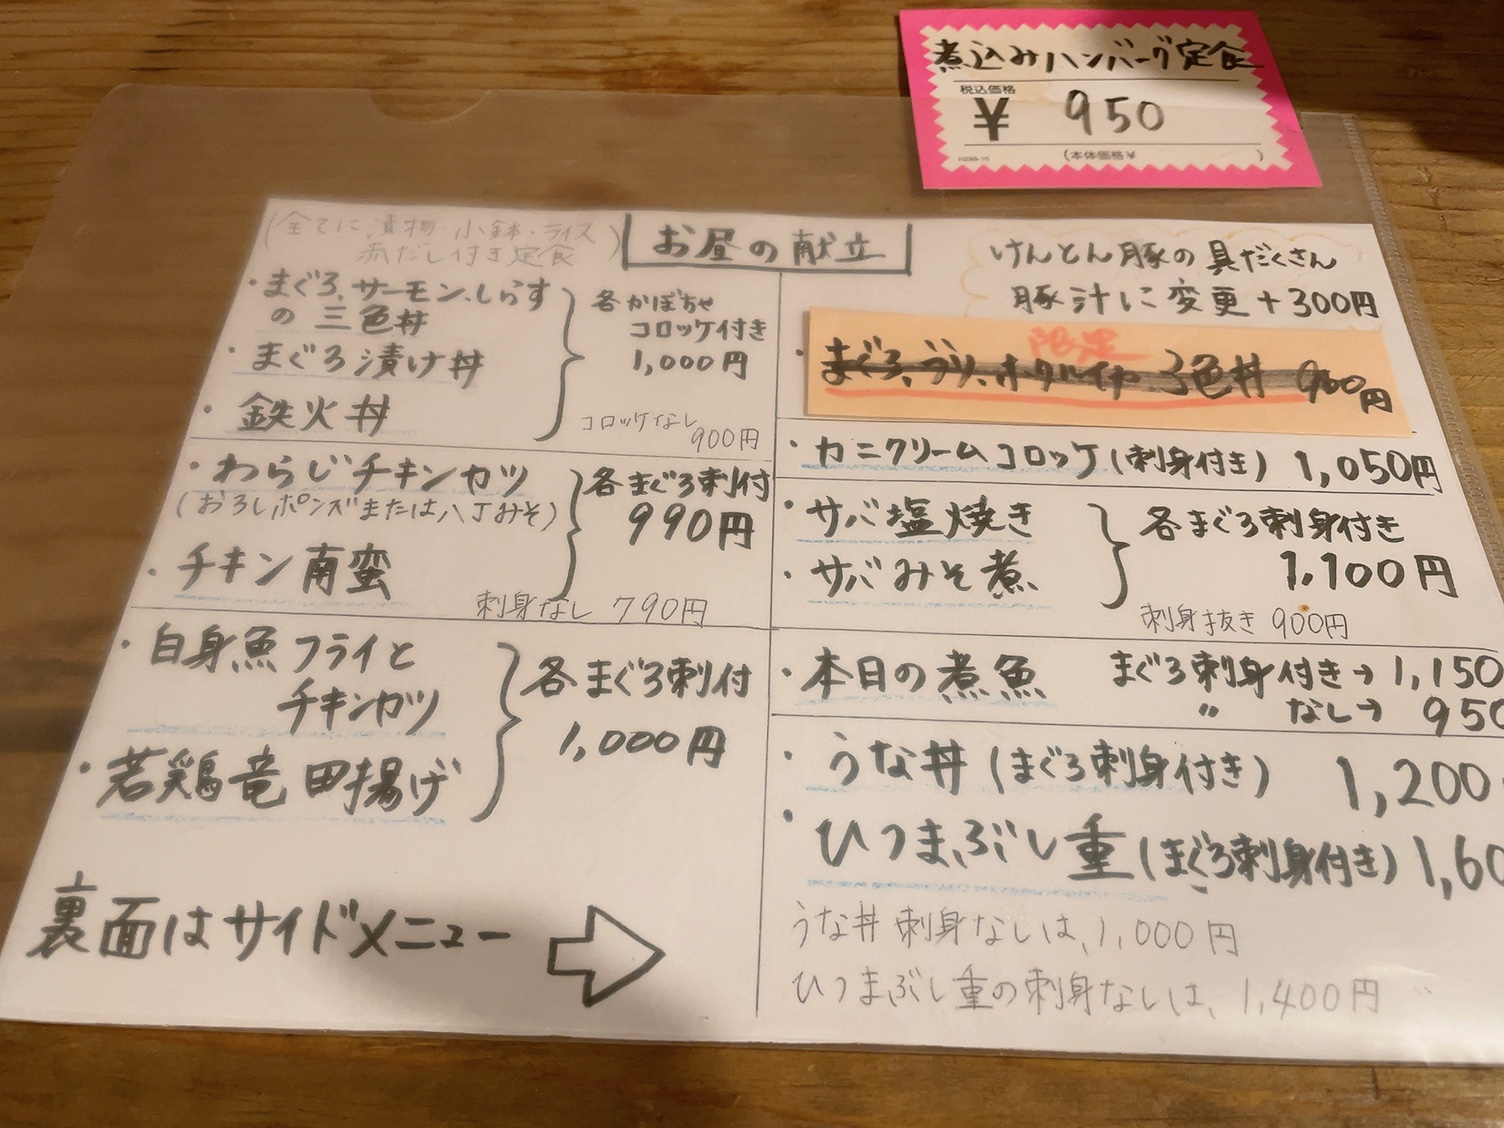 煮込みハンバーグ定食
税込価格
¥ 950
(本体価格¥ )
(全てに漬物・小鉢・ライス
赤だし付き定食)
お昼の献立
・まぐろ、サーモン、しらす
の 三色丼
・まぐろ漬け丼
・鉄火丼
各かぼちゃ
コロッケ付き
1,000円
コロッケなし
900円
・わらじチキンカツ
(おろしポンズまたは八丁みそ)
・チキン南蛮
各まぐろ刺付
990円
刺身なし 790円
・白身魚フライと
チキンカツ
・若鶏竜田揚げ
各まぐろ刺付
1,000円
裏面はサイドメニュー
けんとん豚の具だくさん
豚汁に変更+300円
限定
・まぐろ、ブリ、ホタルイカ 3色丼 980円
・カニクリームコロッケ(刺身付き) 1,050円
・サバ塩焼き
・サバみそ煮
各まぐろ刺身付き
1,100円
刺身抜き 900円
・本日の煮魚 まぐろ刺身付き→1,150
〃 なし→ 950
・うな丼(まぐろ刺身付き) 1,200
・ひつまぶし重(まぐろ刺身付き) 1,60
うな丼刺身なしは、1,000円
ひつまぶし重の刺身なしは、1,400円